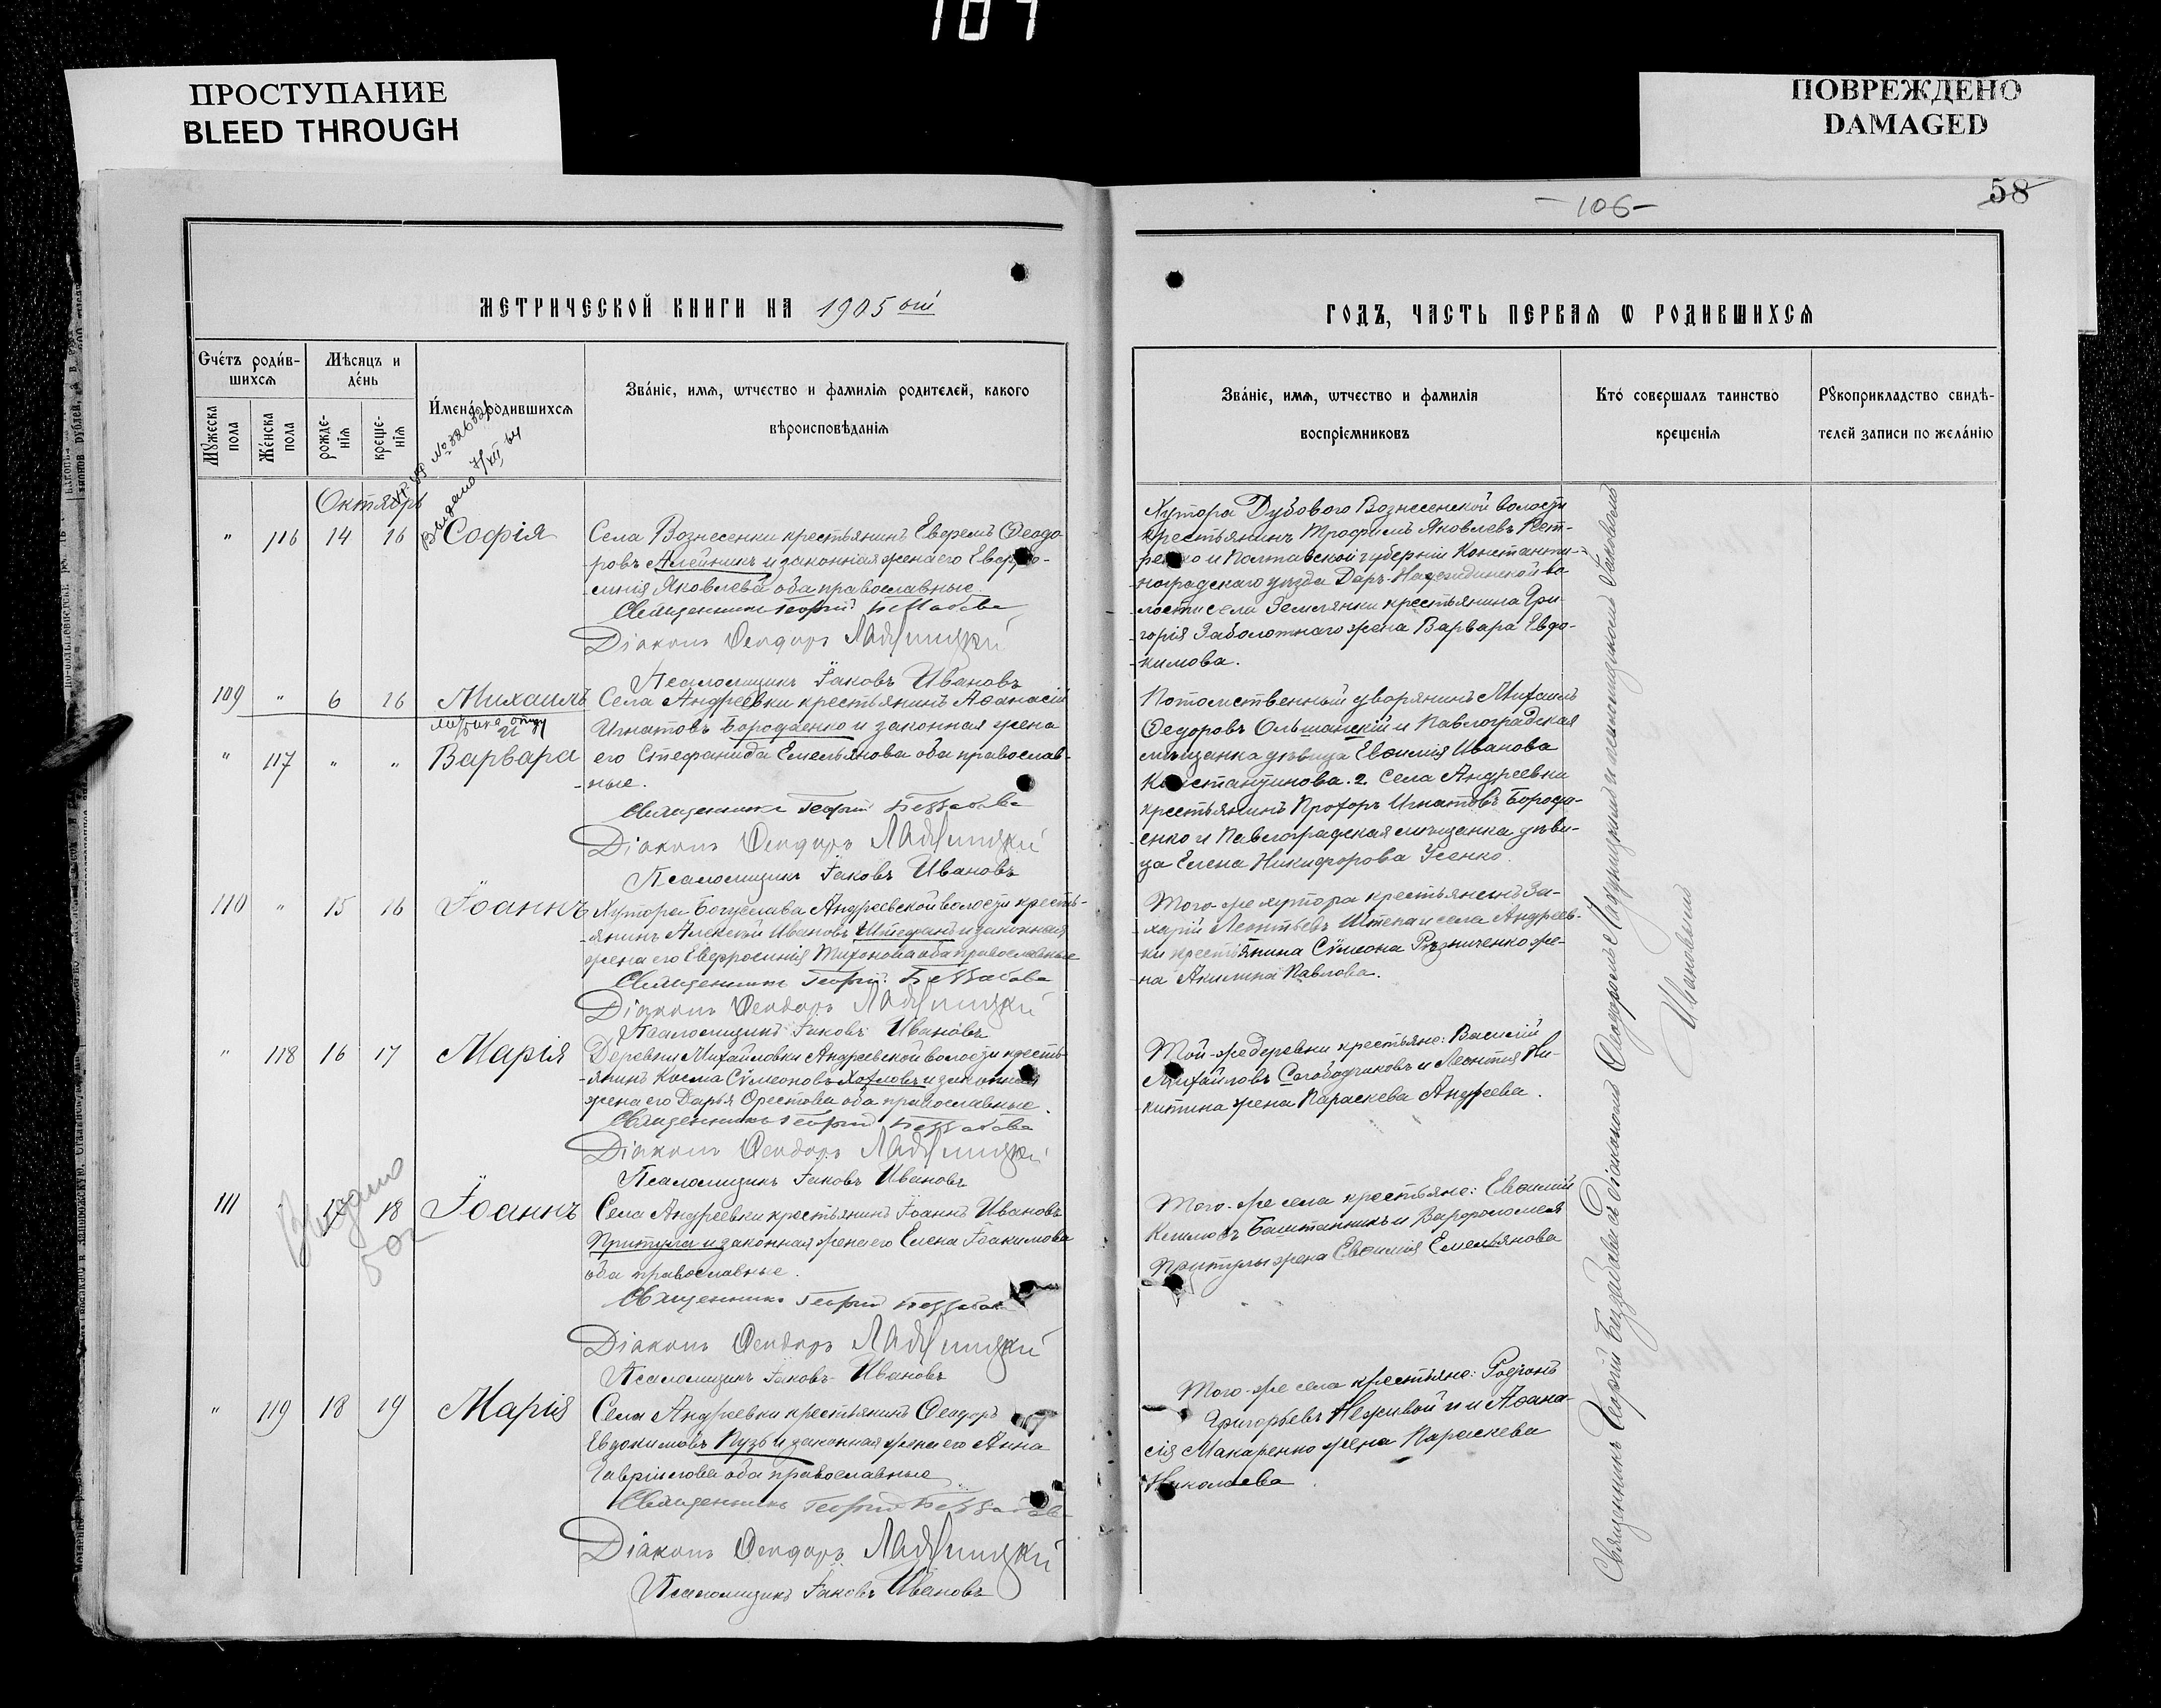 107
ПРОСТУПАНИЕ
BLEED THROUGH
ПОВРЕЖДЕНО
DAMAGED
58
-106-
МЕТРИЧЕСКОЙ КНИГИ НА 1905 ой
ГОДЪ, ЧАСТЬ ПЕРВАЯ Ѡ РОДИВШИХСЯ
Счéтъ роди́в-
шихсѧ
Мꙋжеска
пола
Жéнска
пола
Мѣсяцъ и
дéнь
рожде-
нїѧ
креще-
нїѧ
И́мена̀ родившихсѧ
Звáнїе, имѧ, ѡтчество и фамилїѧ родителей, какого
вѣроисповѣданїѧ
Звáнїе, имѧ, ѡтчество и фамилїѧ
воспрїемниковъ
Ктó совершалъ таинство
крещенїѧ
Рꙋкоприкладство свидѣ-
телей записи по желáнїю
Октябрь
Выдано
" 116 14 16 Софія
Села Вознесенки крестьянинъ Евфремъ Ѳеодо-
ровъ Алейникъ и законная жена его Евфро-
синія Яковлева оба православные
Священникъ Георгій
Діаконъ Ѳеодоръ
Псаломщикъ Іаковъ Ивановъ
Хутора Дубового Вознесенской волости
крестьянинъ Трофимъ Яковлевъ
и Полтавской губерніи Константи-
ноградскаго уѣзда Дар-Надеждинской во-
лости села Землянки крестьянина Гри-
горія Заболотнаго жена Варвара Евдо-
кимова.
109 " 6 16 Михаилъ
" 117 " " Варвара
Села Андреевки крестьянинъ Аѳанасій
Игнатовъ Бородаенко и законная жена
его Стефанида Емельянова оба православ-
ные.
Священникъ Георгій
Діаконъ Ѳеодоръ
Псаломщикъ Іаковъ Ивановъ
Потомственный дворянинъ Михаилъ
Ѳедоровъ Ольшанскій и Павлоградская
мѣщанка дѣвица Евѳимія Иванова
Константинова. 2. Села Андреевки
крестьянинъ Прохоръ Игнатовъ Борода-
енко и Павлоградская мѣщанка дѣви-
ца Елена Никифорова Усенко.
110 " 15 16 Іоаннъ
Хутора Богуслава Андреевской волости кресть-
янинъ Алексѣй Ивановъ и законная
жена его Евфросинія Тихонова оба православные
Священникъ Георгій
Діаконъ Ѳеодоръ
Псаломщикъ Іаковъ Ивановъ
Того-же хутора крестьянинъ За-
харій Леонтьевъ и села Андреев-
ки крестьянина Сѵмеона Рѣзниченко же-
на Акилина Павлова.
" 118 16 17 Марія
Деревни Михайловки Андреевской волости кресть-
янинъ Косма Сѵмеоновъ и законная
жена его Дарья Орестова оба православные.
Священникъ Георгій
Діаконъ Ѳеодоръ
Псаломщикъ Іаковъ Ивановъ
Той-же деревни крестьяне: Василій
Михайловъ и Леонтія Ни-
китина жена Параскева Андреева.
Выдано
502
111 " 17 18 Іоаннъ
Села Андреевки крестьянинъ Іоаннъ Ивановъ
Притула и законная жена его Елена Іоакимова
оба православные.
Священникъ Георгій
Діаконъ Ѳеодоръ
Псаломщикъ Іаковъ Ивановъ
Того-же села крестьяне: Евѳимій
Баштанникъ и Варѳоломея
Притулы жена Евѳимія Емельянова
" 119 18 19 Марія
Села Андреевки крестьянинъ Ѳеодоръ
Евдокимовъ Пузь и законная жена его Анна
Гавріилова оба православные
Священникъ Георгій
Діаконъ Ѳеодоръ
Псаломщикъ Іаковъ Ивановъ
Того-же села крестьяне: Родіонъ
Григорьевъ Неживой и Аѳана-
сія Макаренко жена Параскева
Николаева
Священникъ Георгій съ діакономъ Ѳеодоромъ и псаломщикомъ Іаковомъ
Ивановымъ